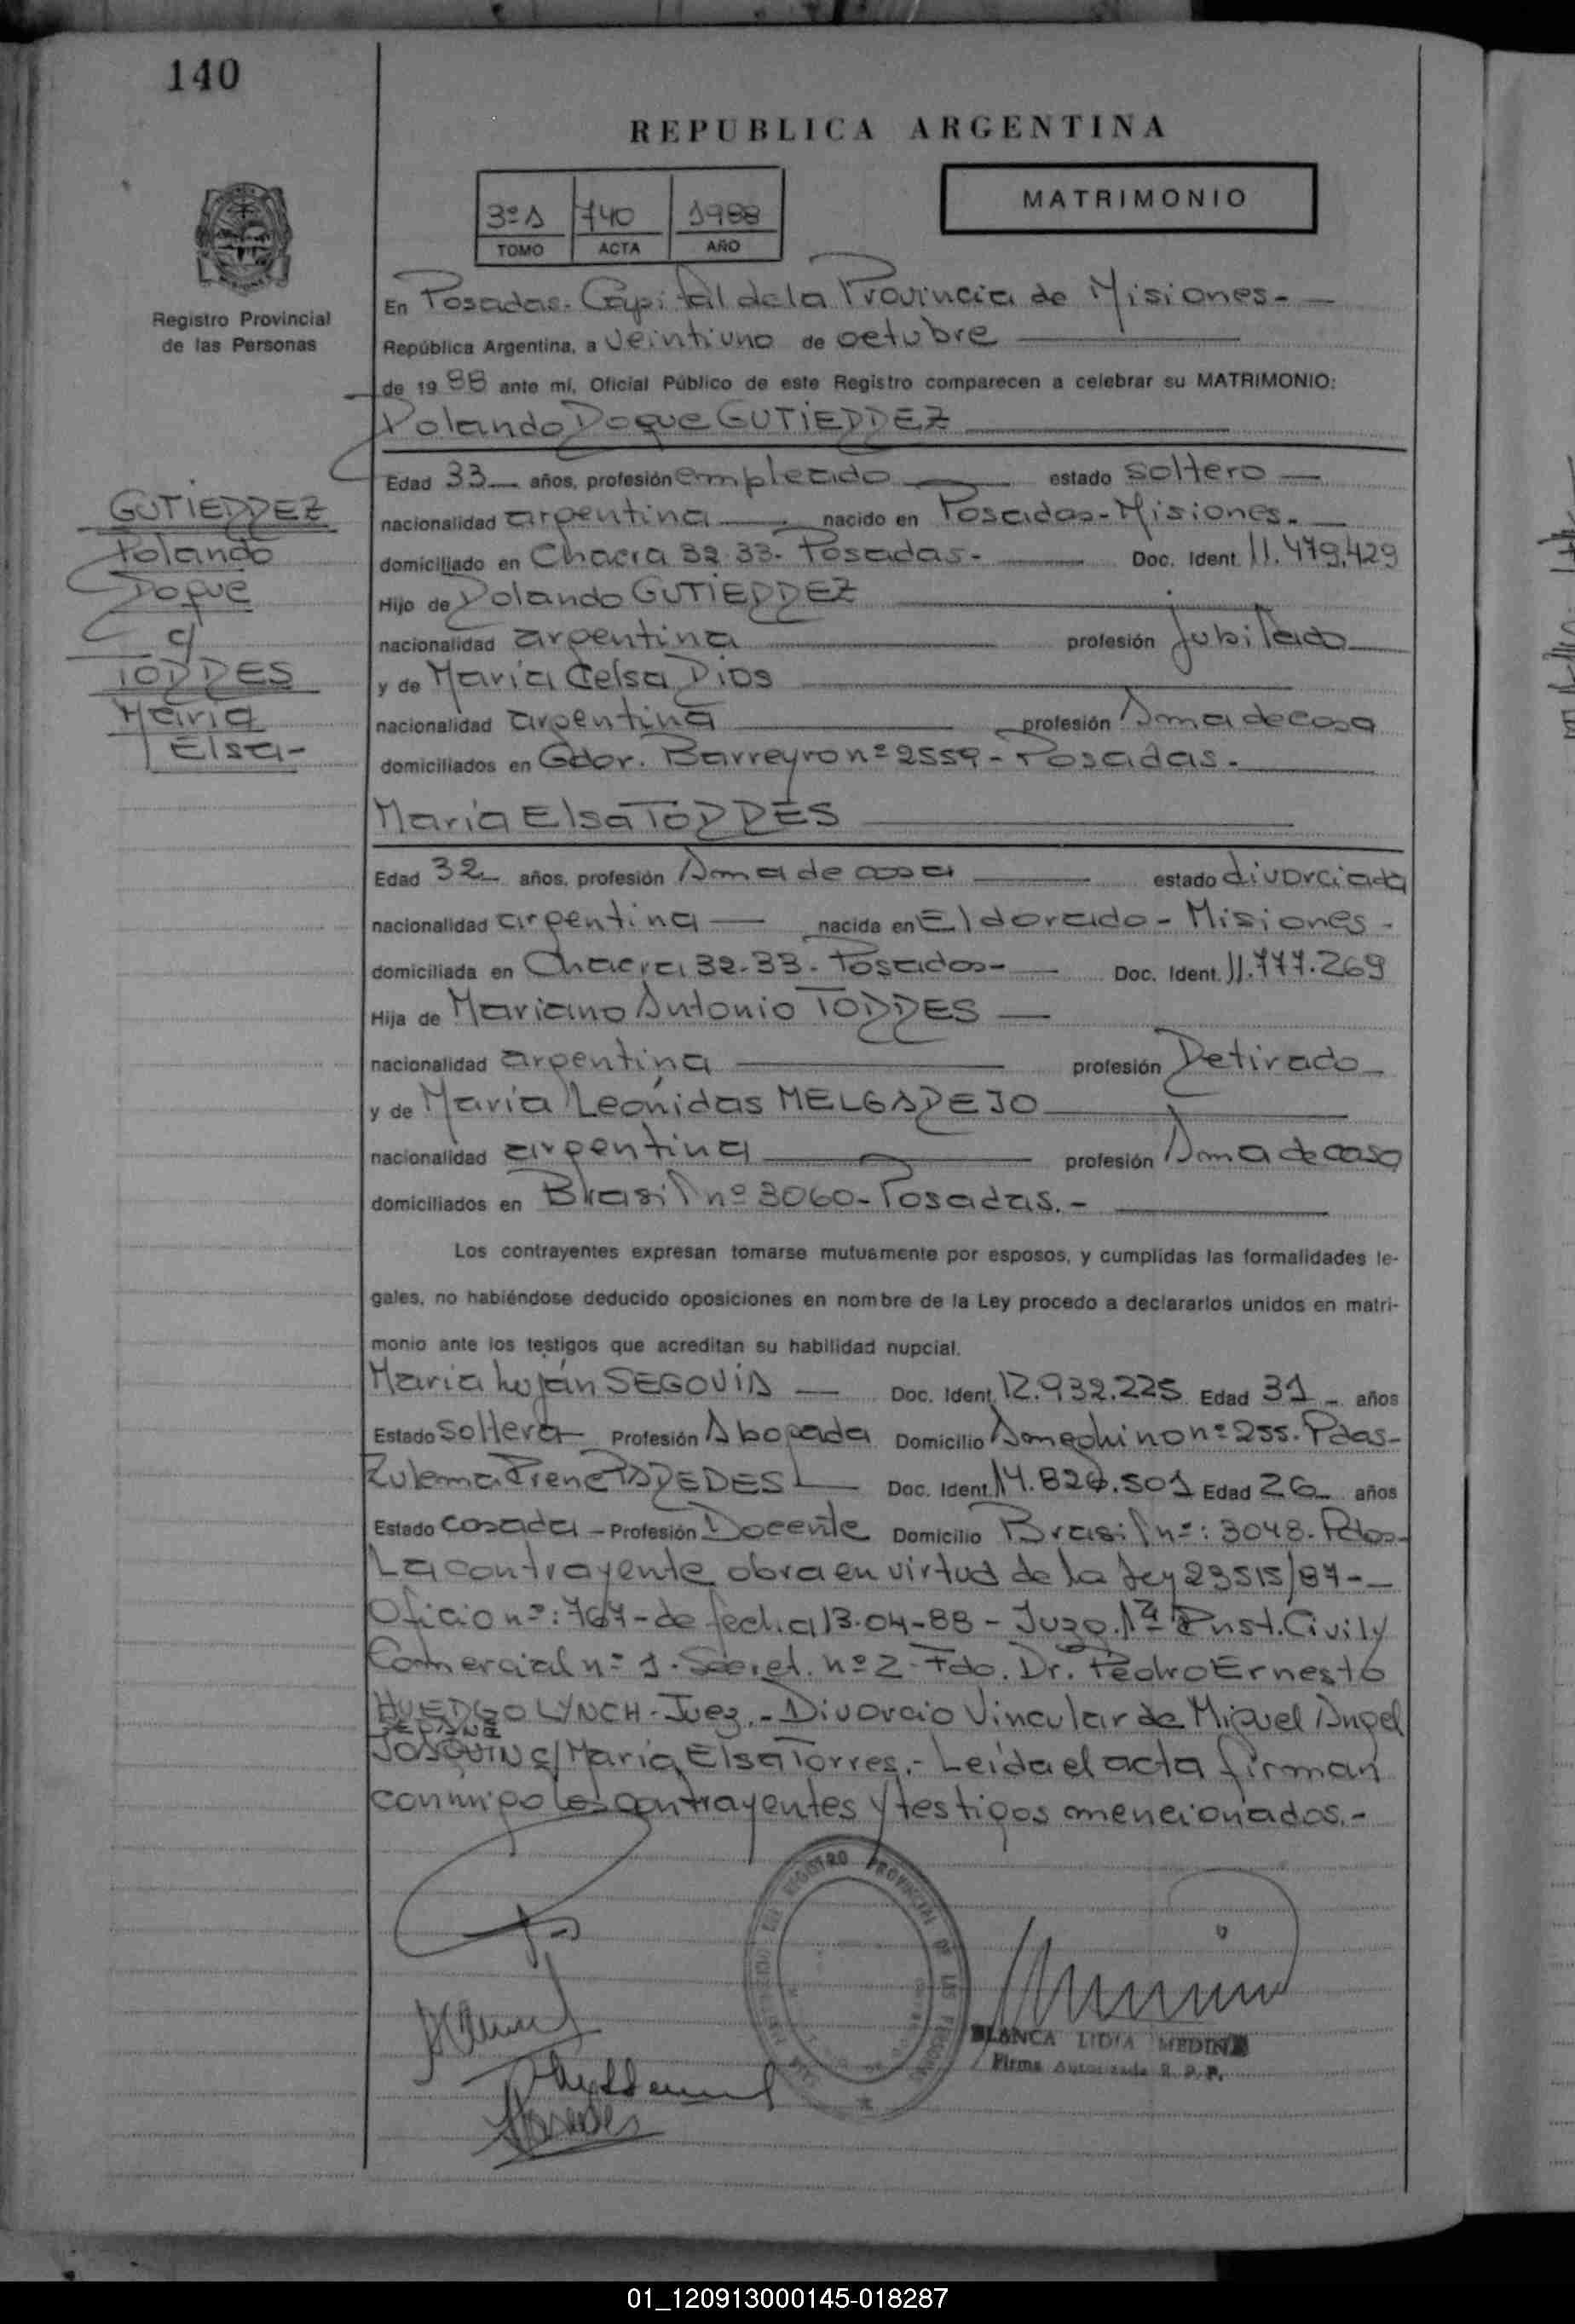 140
REPUBLICA ARGENTINA
3º A 740 1988
TOMO ACTA AÑO
MATRIMONIO
Registro Provincial
de las Personas
En Posadas. Capital de la Provincia de Misiones.-
República Argentina, a veintiuno de octubre
de 1988 ante mí, Oficial Público de este Registro comparecen a celebrar su MATRIMONIO:
Rolando Roque GUTIERREZ
GUTIERREZ
Rolando
Roque
c/
TORRES
Maria
Elsa-
Edad 33 años, profesión empleado estado soltero
nacionalidad argentina nacido en Posadas-Misiones.
domiciliado en Chacra 32.33. Posadas.- Doc. Ident. 11.479.429
Hijo de Rolando GUTIERREZ
nacionalidad argentina profesión Jubilado
y de María Celsa Dios
nacionalidad argentina profesión Ama de casa
domiciliados en Gdor. Barreyro nº 2559 - Posadas.
María Elsa TORRES
Edad 32 años, profesión Ama de casa estado divorciada
nacionalidad argentina nacida en Eldorado - Misiones -
domiciliada en Chacra 32-33. Posadas- Doc. Ident. 11.777.269
Hija de Mariano Antonio TORRES
nacionalidad argentina profesión Retirado
y de María Leónidas MELGAREJO
nacionalidad argentina profesión Ama de casa
domiciliados en Brasil nº 3060-Posadas.-
Los contrayentes expresan tomarse mutuamente por esposos, y cumplidas las formalidades le-
gales, no habiéndose deducido oposiciones en nombre de la Ley procedo a declararlos unidos en matri-
monio ante los testigos que acreditan su habilidad nupcial.
María Luján SEGOVIA Doc. Ident. 12.932.225 Edad 31 años
Estado soltera Profesión Abogada Domicilio Ameghino nº 255. Pdas-
Zulema Irene PAREDES Doc. Ident. 14.826.501 Edad 26 años
Estado casada - Profesión Docente Domicilio Brasil nº: 3048. Pdas-
La contrayente obra en virtud de la Ley 23515/87-
Oficio nº: 767-de fecha 13-04-88 - Juzg. 1ª Inst. Civil y
Comercial nº 1. Secret. nº 2. Fdo. Dr. Pedro Ernesto
HUERGO LYNCH - Juez.- Divorcio Vincular de Miguel Angel
JOAQUIN c/ María Elsa Torres.- Leída el acta firman
conmigo los contrayentes y testigos mencionados.-
REGISTRO PROVINCIAL DE LAS PERSONAS
BLANCA LIDIA MEDINA
Firma Autorizada R. P. P.
Paredes
01_120913000145-018287